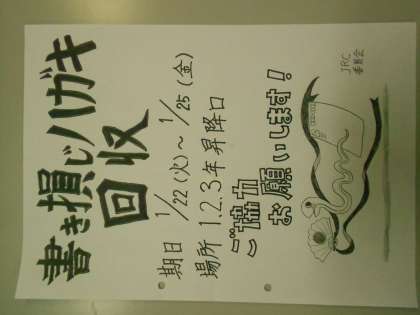 書き損じハガキ
回収
期日 1/22(火)～1/25(金)
場所 1.2.3年昇降口
ご協力
お願いします!
JRC
委員会